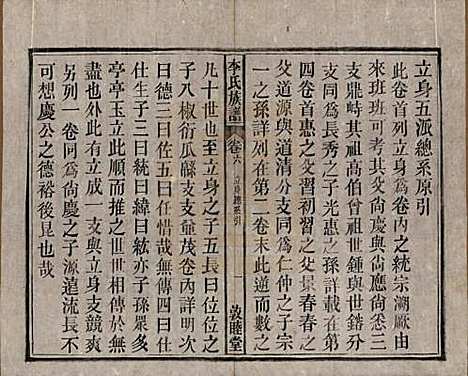 立身五派總系原引
此卷首列立身爲卷內之統宗溯厥由
來班班可考其父尚慶與尚悉三
支鼎峙其祖高伯世鍾與世鐇曾
支同爲長秀之子光惠之孫詳在第
四卷首惠之父初習之父景春春之
父道源與道清分支同爲仁仲之子宗
一之之孫詳列在第二卷末此道而數之
李氏族譜
卷六
立身總系引
一
敦睦堂
凡十世也至立身之子五長曰位位之
子八椒衍瓜緜支爺茂卷內詳明其
曰德三曰佐五曰任惜哉無傳四曰仕
仕生子三曰統曰緯曰紘亦子孫眾多
亭亭玉立此順而推之世世相傳於無
盡也外有立成一支與立身之支競爽
另列一卷同爲尚慶之子源遠流長不
可想慶公之德裕後昆也哉